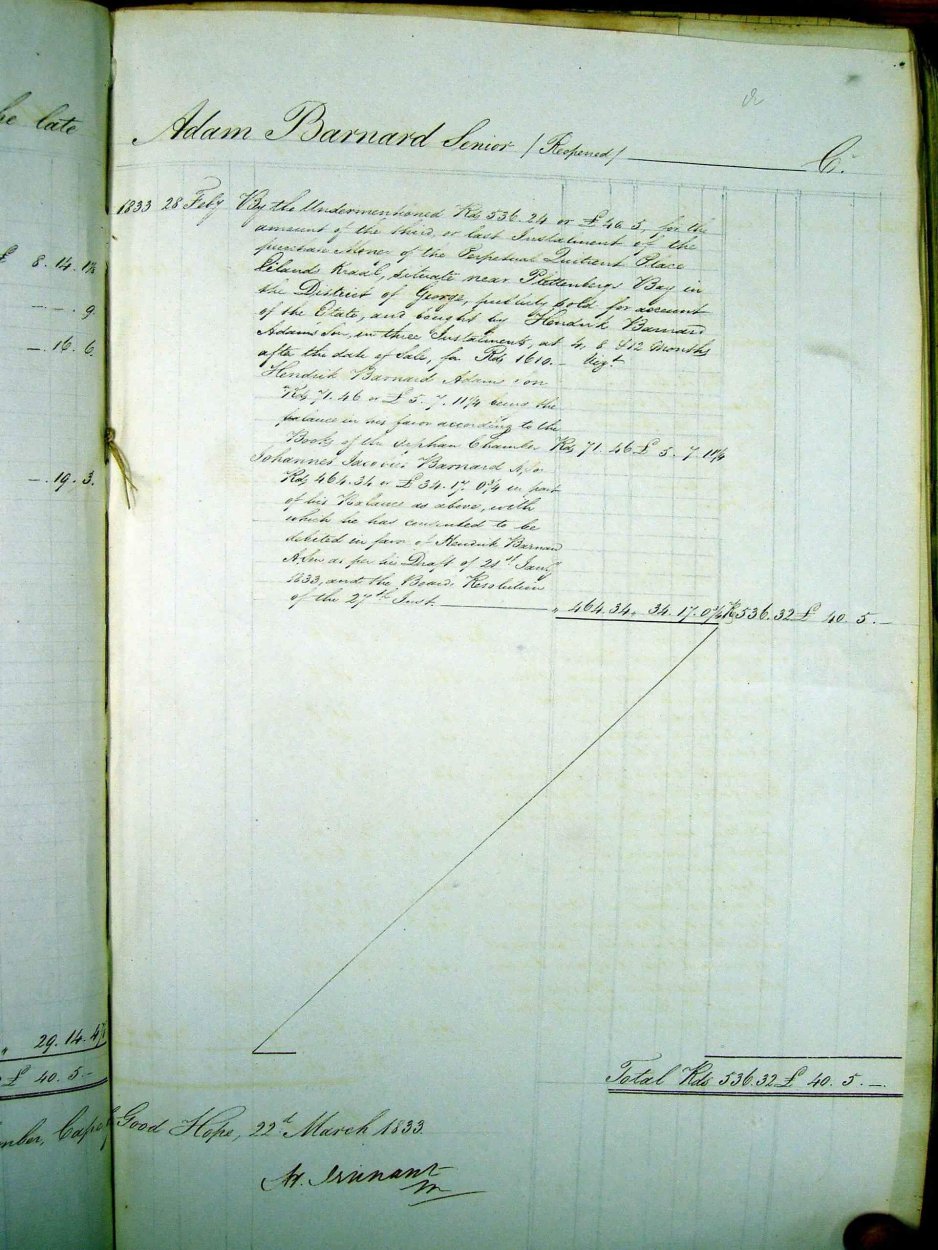 he late
8. 14. 1¾
— — . 9.
— . 16. 6
— . 19. 3.
" 29. 14. 4¾
£ 40. 5 –
Adam Barnard Senior / Reopened / Cr.
1833 28 Feby By the Undermentioned Rds 536. 24 or £ 40. 5. for the
amount of the third or last Instalment of the
purchase Money of the Perpetual Quitrent Place
Eilands Kraal, situate near Plettenbergs Bay in
the District of George, publicly sold for account
of the Estate, and bought by Hendrik Barnard
Adam's Son, in three Instalments, at 4, 8 & 12 Months
after the date of Sale, for Rds 1610. – Vizt
Hendrik Barnard Adams son
Rds 71. 46 or £ 5. 7. 11¼ being the
balance in his favor according to the
Books of the Orphan Chamber Rds 71. 46 £ 5. 7. 11¼
Johannes Jacobus Barnard A,son
Rds 464. 34 or £ 34. 17. 0¾ in part
of his Balance as above, with
which he has consented to be
debited in favor of Hendrik Barnard
A,son as per his Draft of 21st Jany
1833, and the Board's Resolution
of the 27th Inst. " 464. 34 " 34. 17. 0¾ Rds 536. 32 £ 40. 5. –
Total Rds 536. 32 £ 40. 5. –
mber, Cape of Good Hope, 22d March 1833.